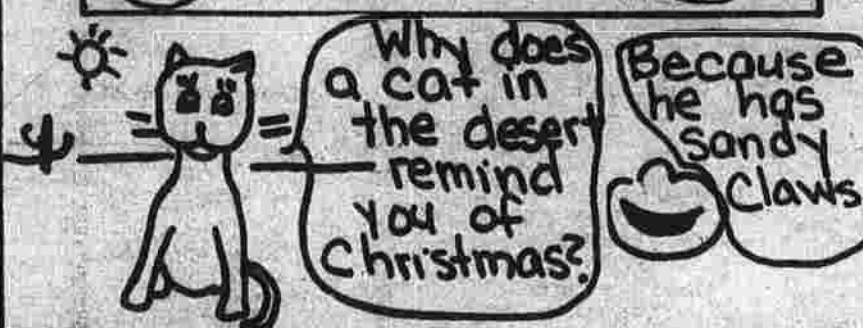 Why does
a cat in
the desert
remind
you of
Christmas?
Because
he has
sandy
claws